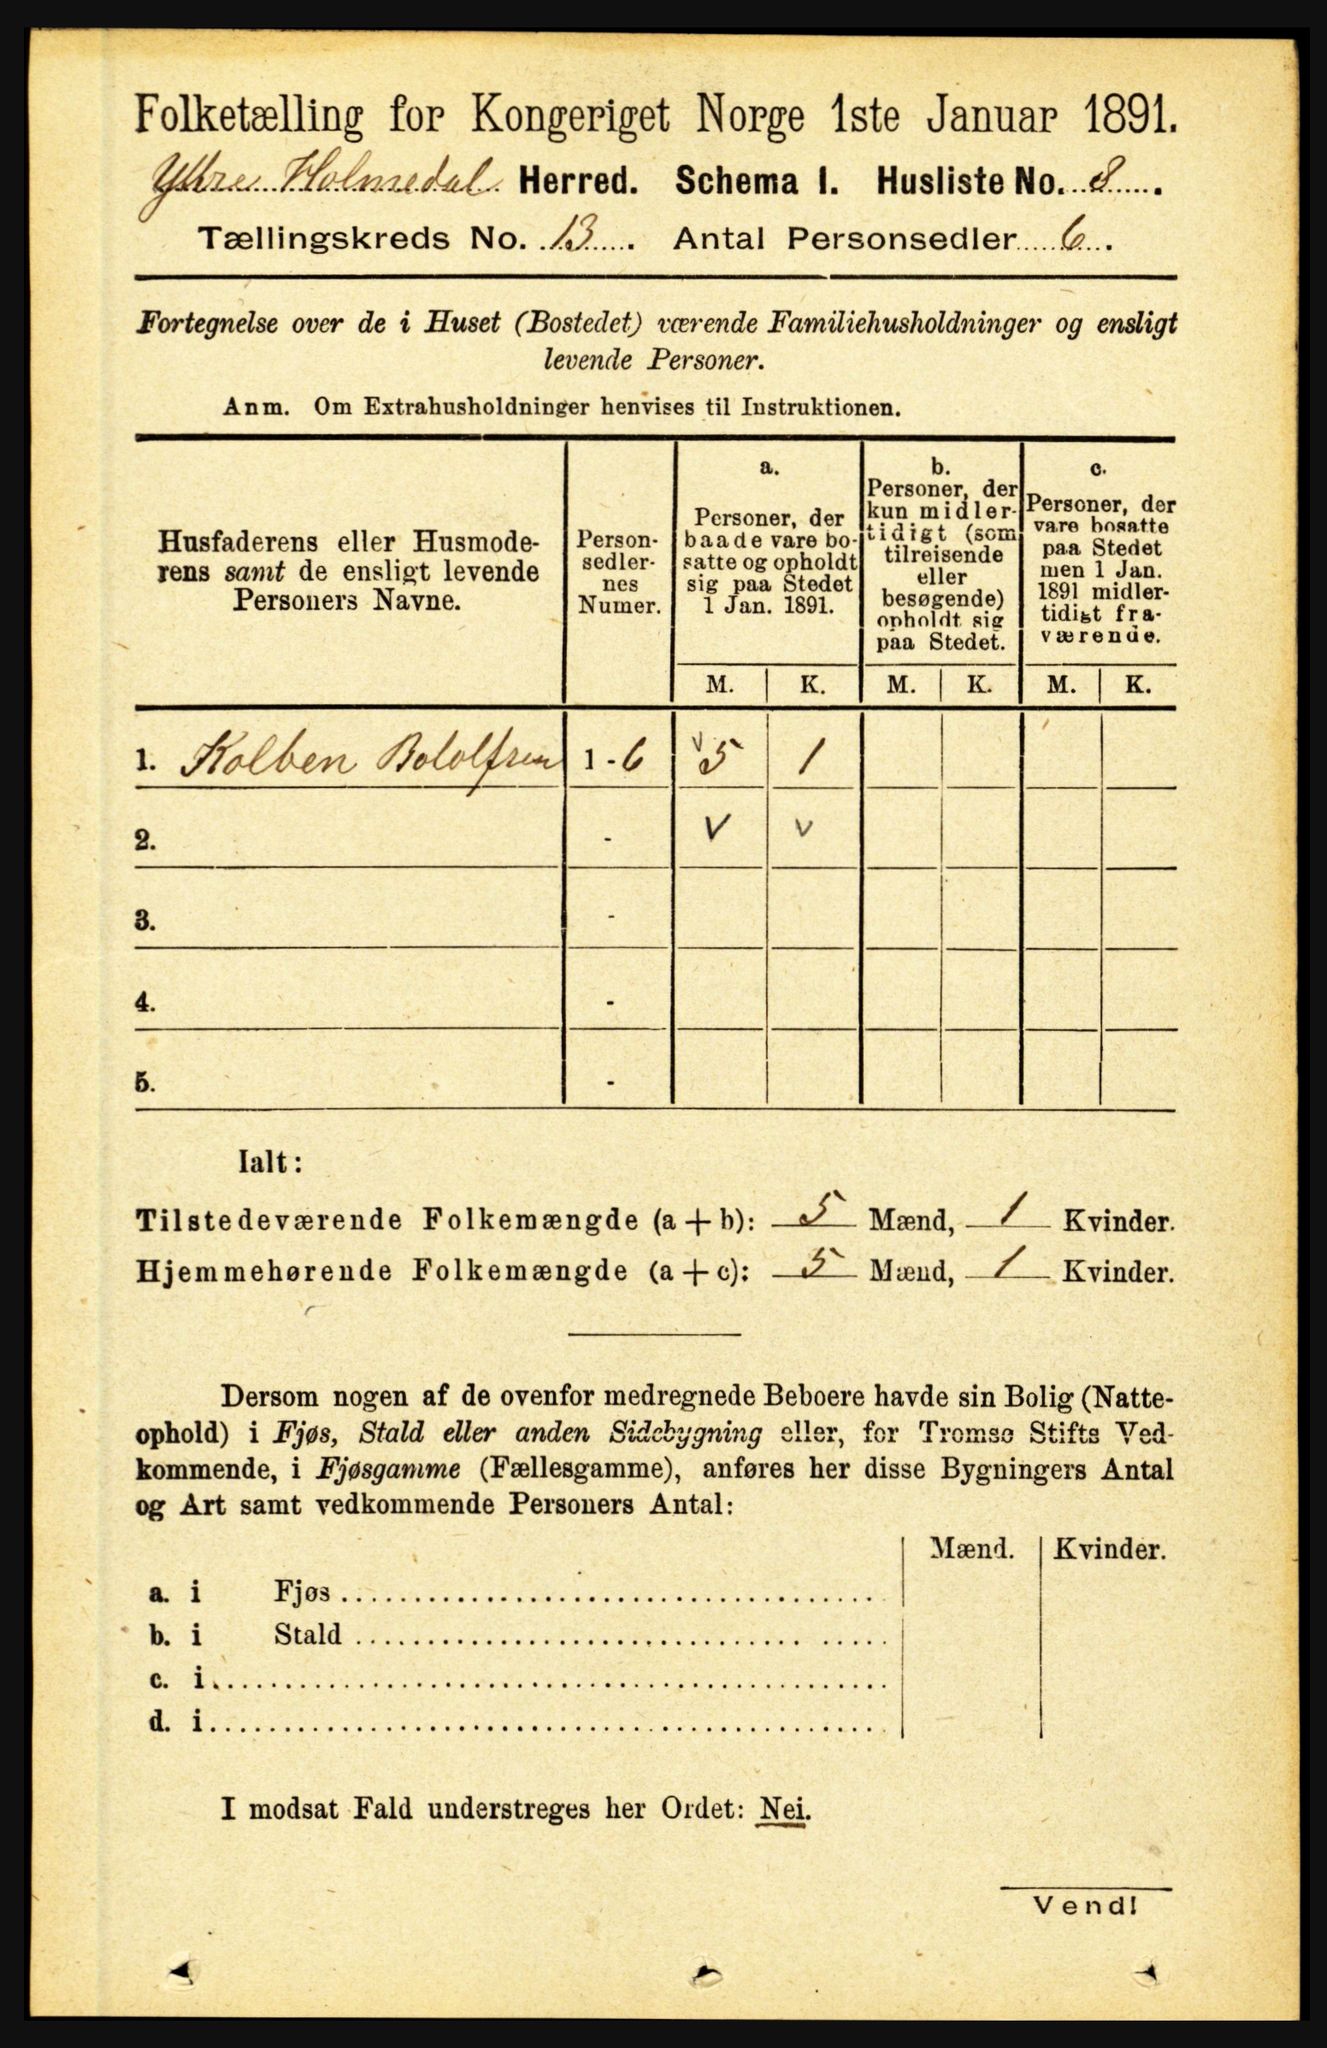 Folketælling for Kongeriget Norge 1ste Januar 1891.
Yttre Holmedal Herred. Schema I. Husliste No. 8.
Tællingskreds No. 13. Antal Personsedler 6.
Fortegnelse over de i Huset (Bostedet) værende Familiehusholdninger og ensligt
levende Personer.
Anm. Om Extrahusholdninger henvises til Instruktionen.
Husfaderens eller Husmode-
rens samt de ensligt levende
Personers Navne.
Person-
sedler-
nes
Numer.
a.
Personer, der
baade vare bo-
satte og opholdt
sig paa Stedet
1 Jan. 1891.
b.
Personer, der
kun midler-
tidigt (som
tilreisende
eller
besøgende)
opholdt sig
paa Stedet.
c.
Personer, der
vare bosatte
paa Stedet
men 1 Jan.
1891 midler-
tidigt fra-
værende.
M. K. M. K. M. K.
1. Kolben 1 - 6 v 5 1
2. - v v
3. -
4. -
5. -
Ialt:
Tilstedeværende Folkemængde (a + b): 5 Mænd, 1 Kvinder.
Hjemmehørende Folkemængde (a + c): 5 Mænd, 1 Kvinder.
Dersom nogen af de ovenfor medregnede Beboere havde sin Bolig (Natte-
ophold) i Fjøs, Stald eller anden Sidebygning eller, for Tromsø Stifts Ved-
kommende, i Fjøsgamme (Fællesgamme), anføres her disse Bygningers Antal
og Art samt vedkommende Personers Antal:
Mænd. Kvinder.
a. i Fjøs
b. i Stald
c. i
d. i
I modsat Fald understreges her Ordet: Nei.
Vend!